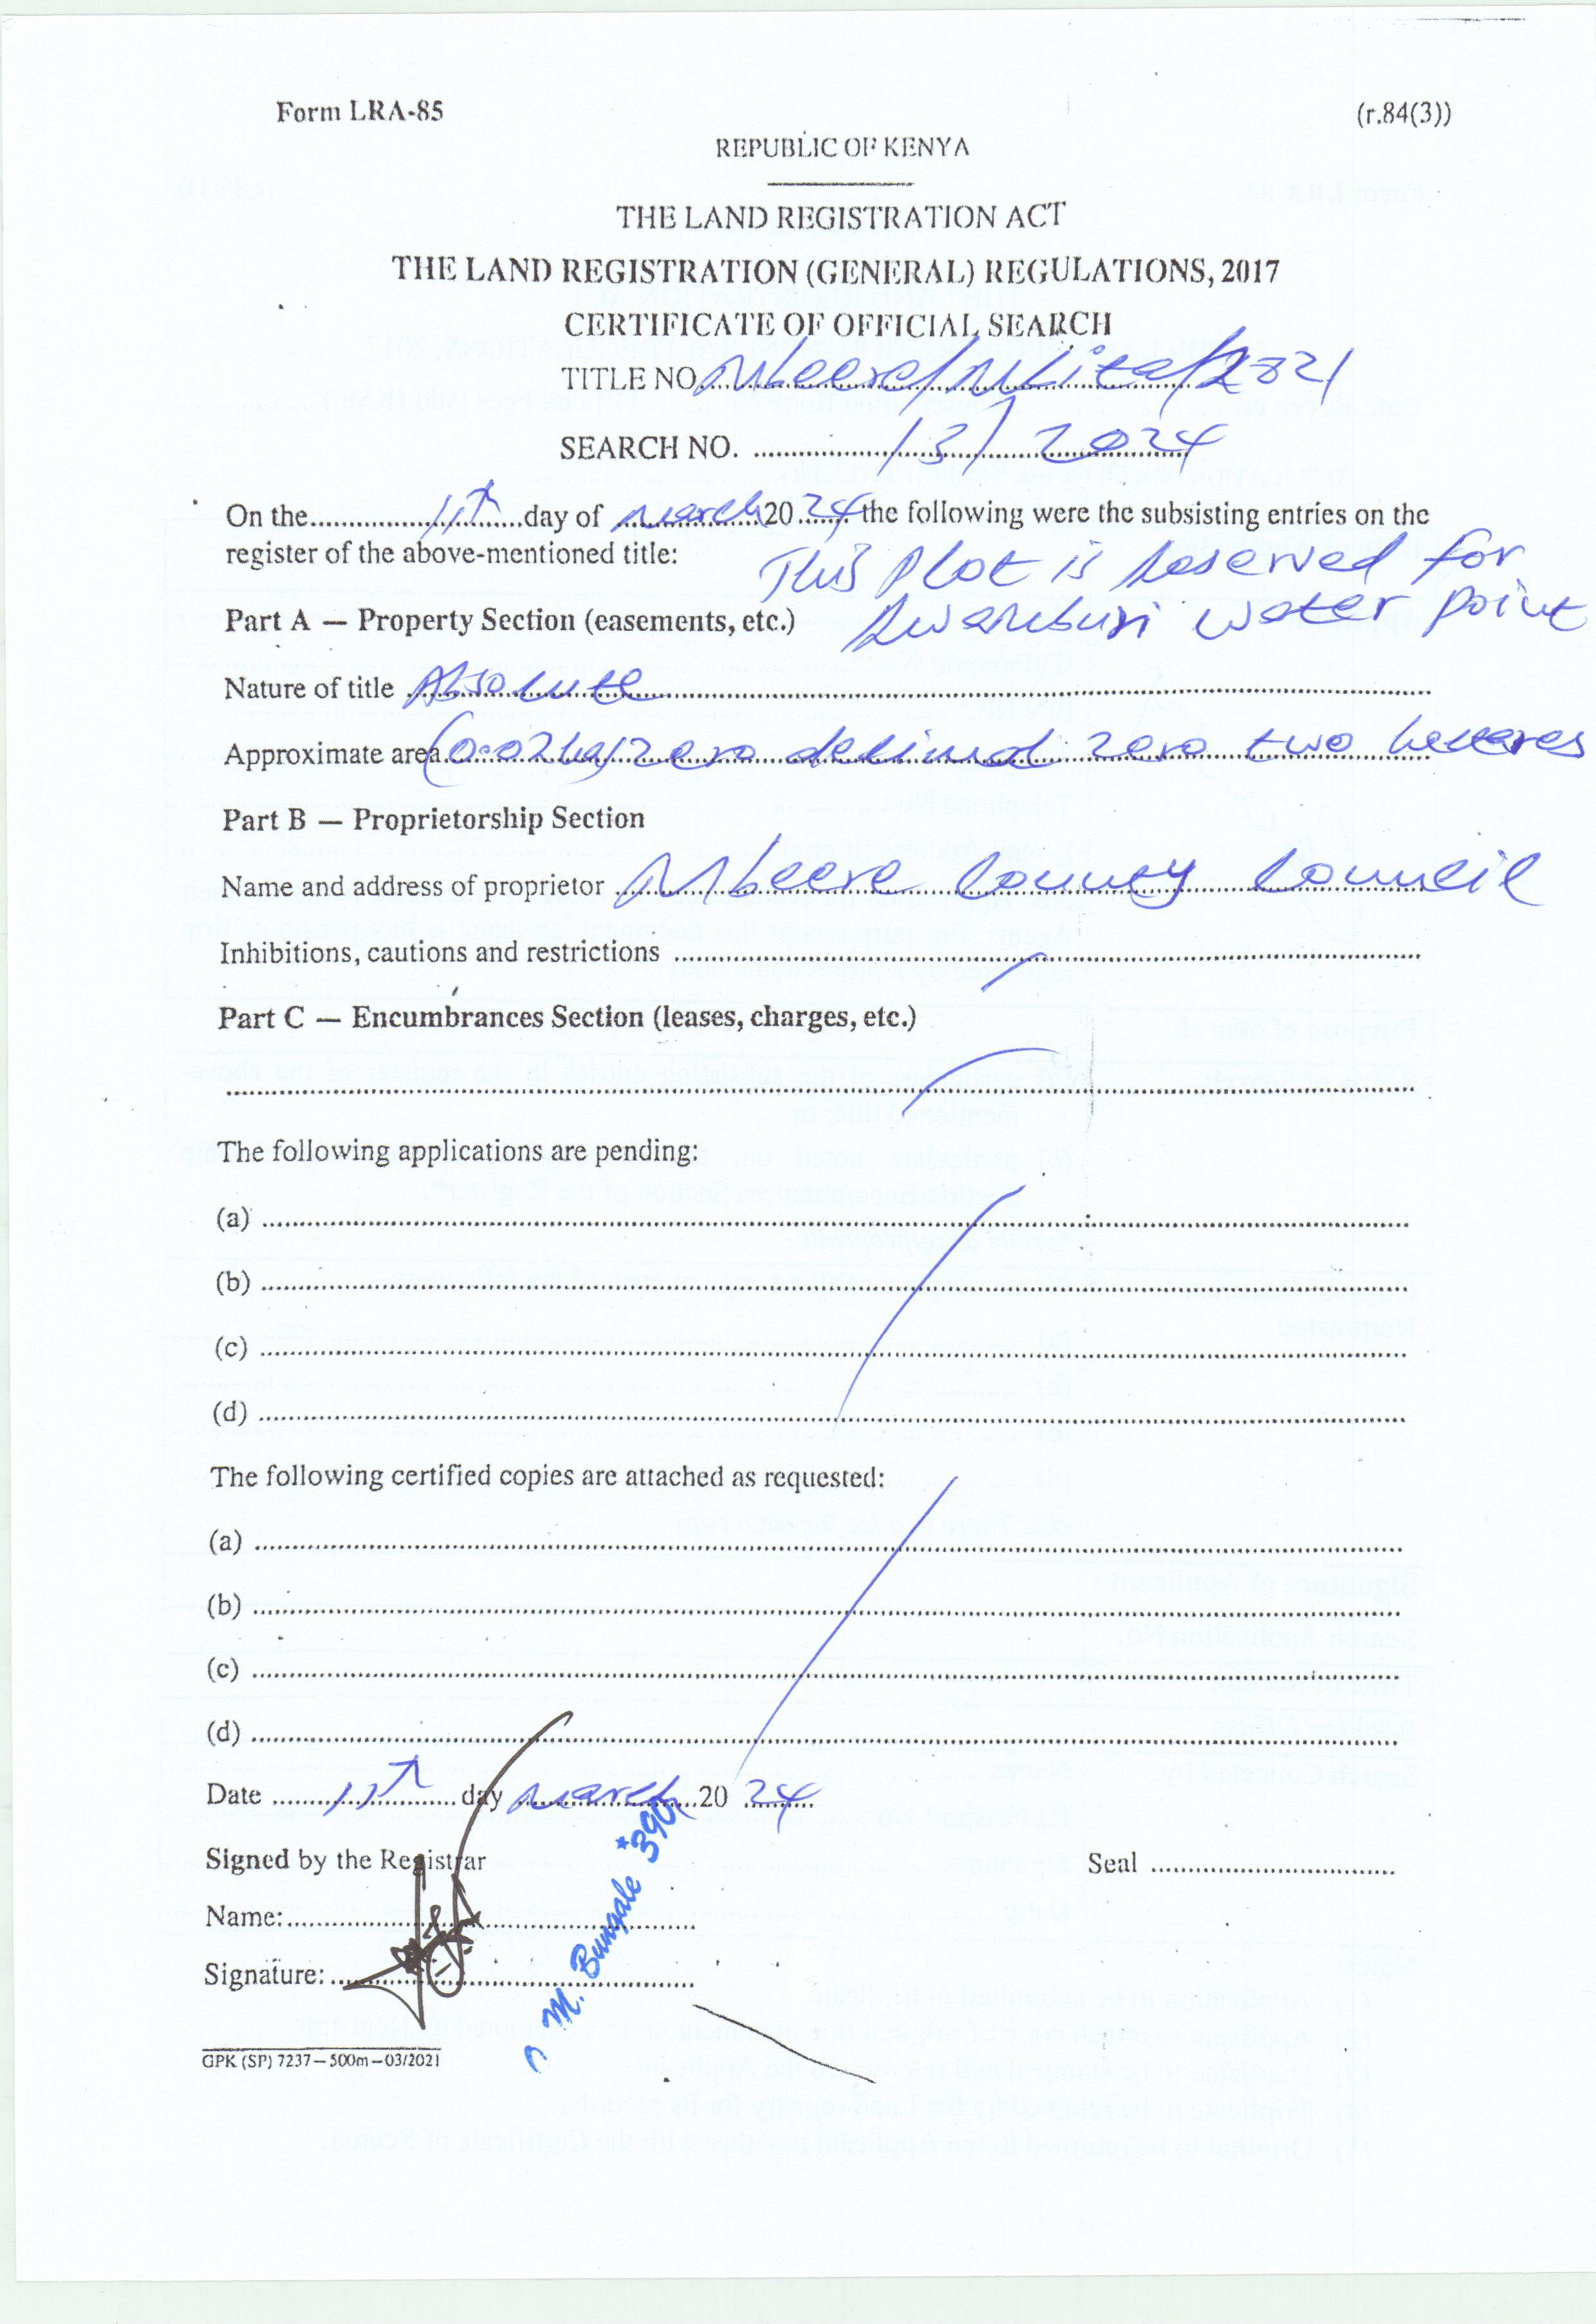 Form LRA-85 (r.84(3))
REPUBLIC OF KENYA
THE LAND REGISTRATION ACT
THE LAND REGISTRATION (GENERAL) REGULATIONS, 2017
CERTIFICATE OF OFFICIAL SEARCH
TITLE NO. Mbeere/Mbita/2821
SEARCH NO. 13/2024
On the 11th day of March 20 24 the following were the subsisting entries on the
register of the above-mentioned title: This Plot is Reserved for
Part A — Property Section (easements, etc.) water point
Nature of title Absolute
Approximate area (0.02ha) zero decimal zero two hectares
Part B — Proprietorship Section
Name and address of proprietor Mbeere County Council
Inhibitions, cautions and restrictions
Part C — Encumbrances Section (leases, charges, etc.)
The following applications are pending:
(a)
(b)
(c)
(d)
The following certified copies are attached as requested:
(a)
(b)
(c)
(d)
Date 11th day March 20 24
Signed by the Registrar Seal
Name:
Signature:
M. Bungale *390
GPK (SP) 7237—500m—03/2021